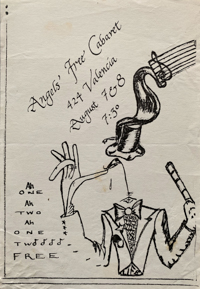 Angels' Free Cabaret
424 Valencia
August 7&8
7:30
Ah
ONE
Ah
TWO
Ah
ONE
TWOOOOO
FREE